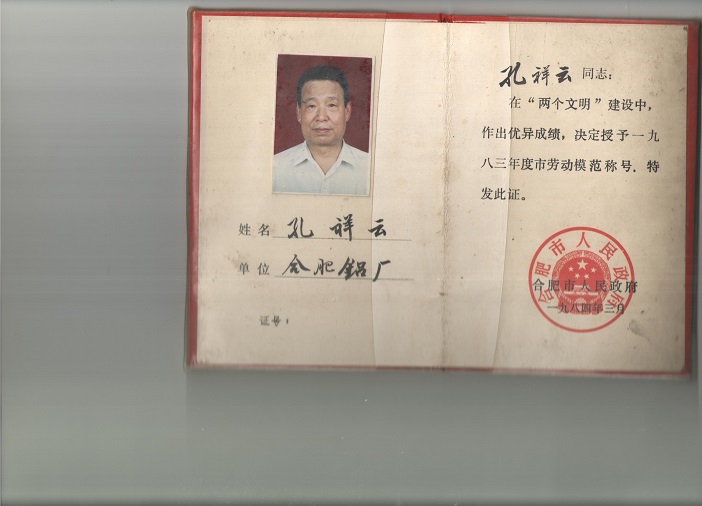 姓名 孔祥云
单位 合肥铝厂
证号：
孔祥云 同志：
在“两个文明”建设中，
作出优异成绩，决定授予一九
八三年度市劳动模范称号．特
发此证。
合肥市人民政府
合肥市人民政府
一九八四年三月